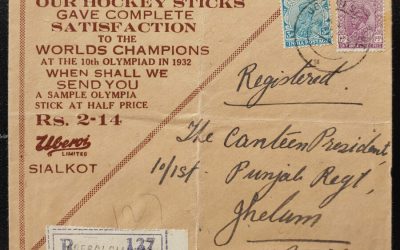 OUR HOCKEY STICKS
GAVE COMPLETE
SATISFACTION
TO THE
WORLDS CHAMPIONS
AT THE 10th OLYMPIAD IN 1932
WHEN SHALL WE
SEND YOU
A SAMPLE OLYMPIA
STICK AT HALF PRICE
Rs. 2-14
Uberoi
LIMITED
SIALKOT
Registered.
The Canteen President,
10/1st. Punjab Regt,
Jhelum
R
137